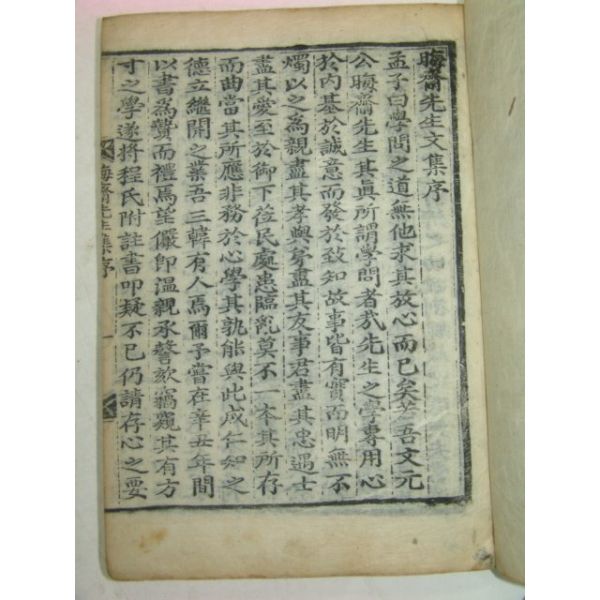 晦齋先生文集序
孟子曰學問之道無他求其放心而已矣若吾文元
公晦齋先生其眞所謂學問者哉先生之學專用心
於內基於誠意而發於致知故事皆有實而明無不
燭以之爲親盡其孝與旁盡其友事君盡其忠遇士
盡其愛至於御下莅民處患臨亂莫不一本其所存
而曲當其所應非務於心學其孰能與此成仁知之
德立繼開之業吾三韓有人焉爾予嘗在辛丑年間
以書爲贄而禮焉望儼卽溫親承謦欬竊窺其有方
寸之學遂將程氏附註書叩疑不已仍請存心之要
晦齋先生集序
一